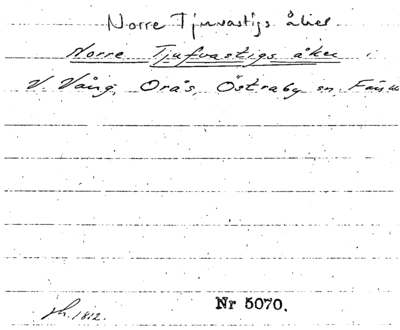 Norre Tjuvastigs åker
Norre Tjufvastigs åker i
V. Vång, Orås, Östraby sn, Färs
Nr 5070.
1812.